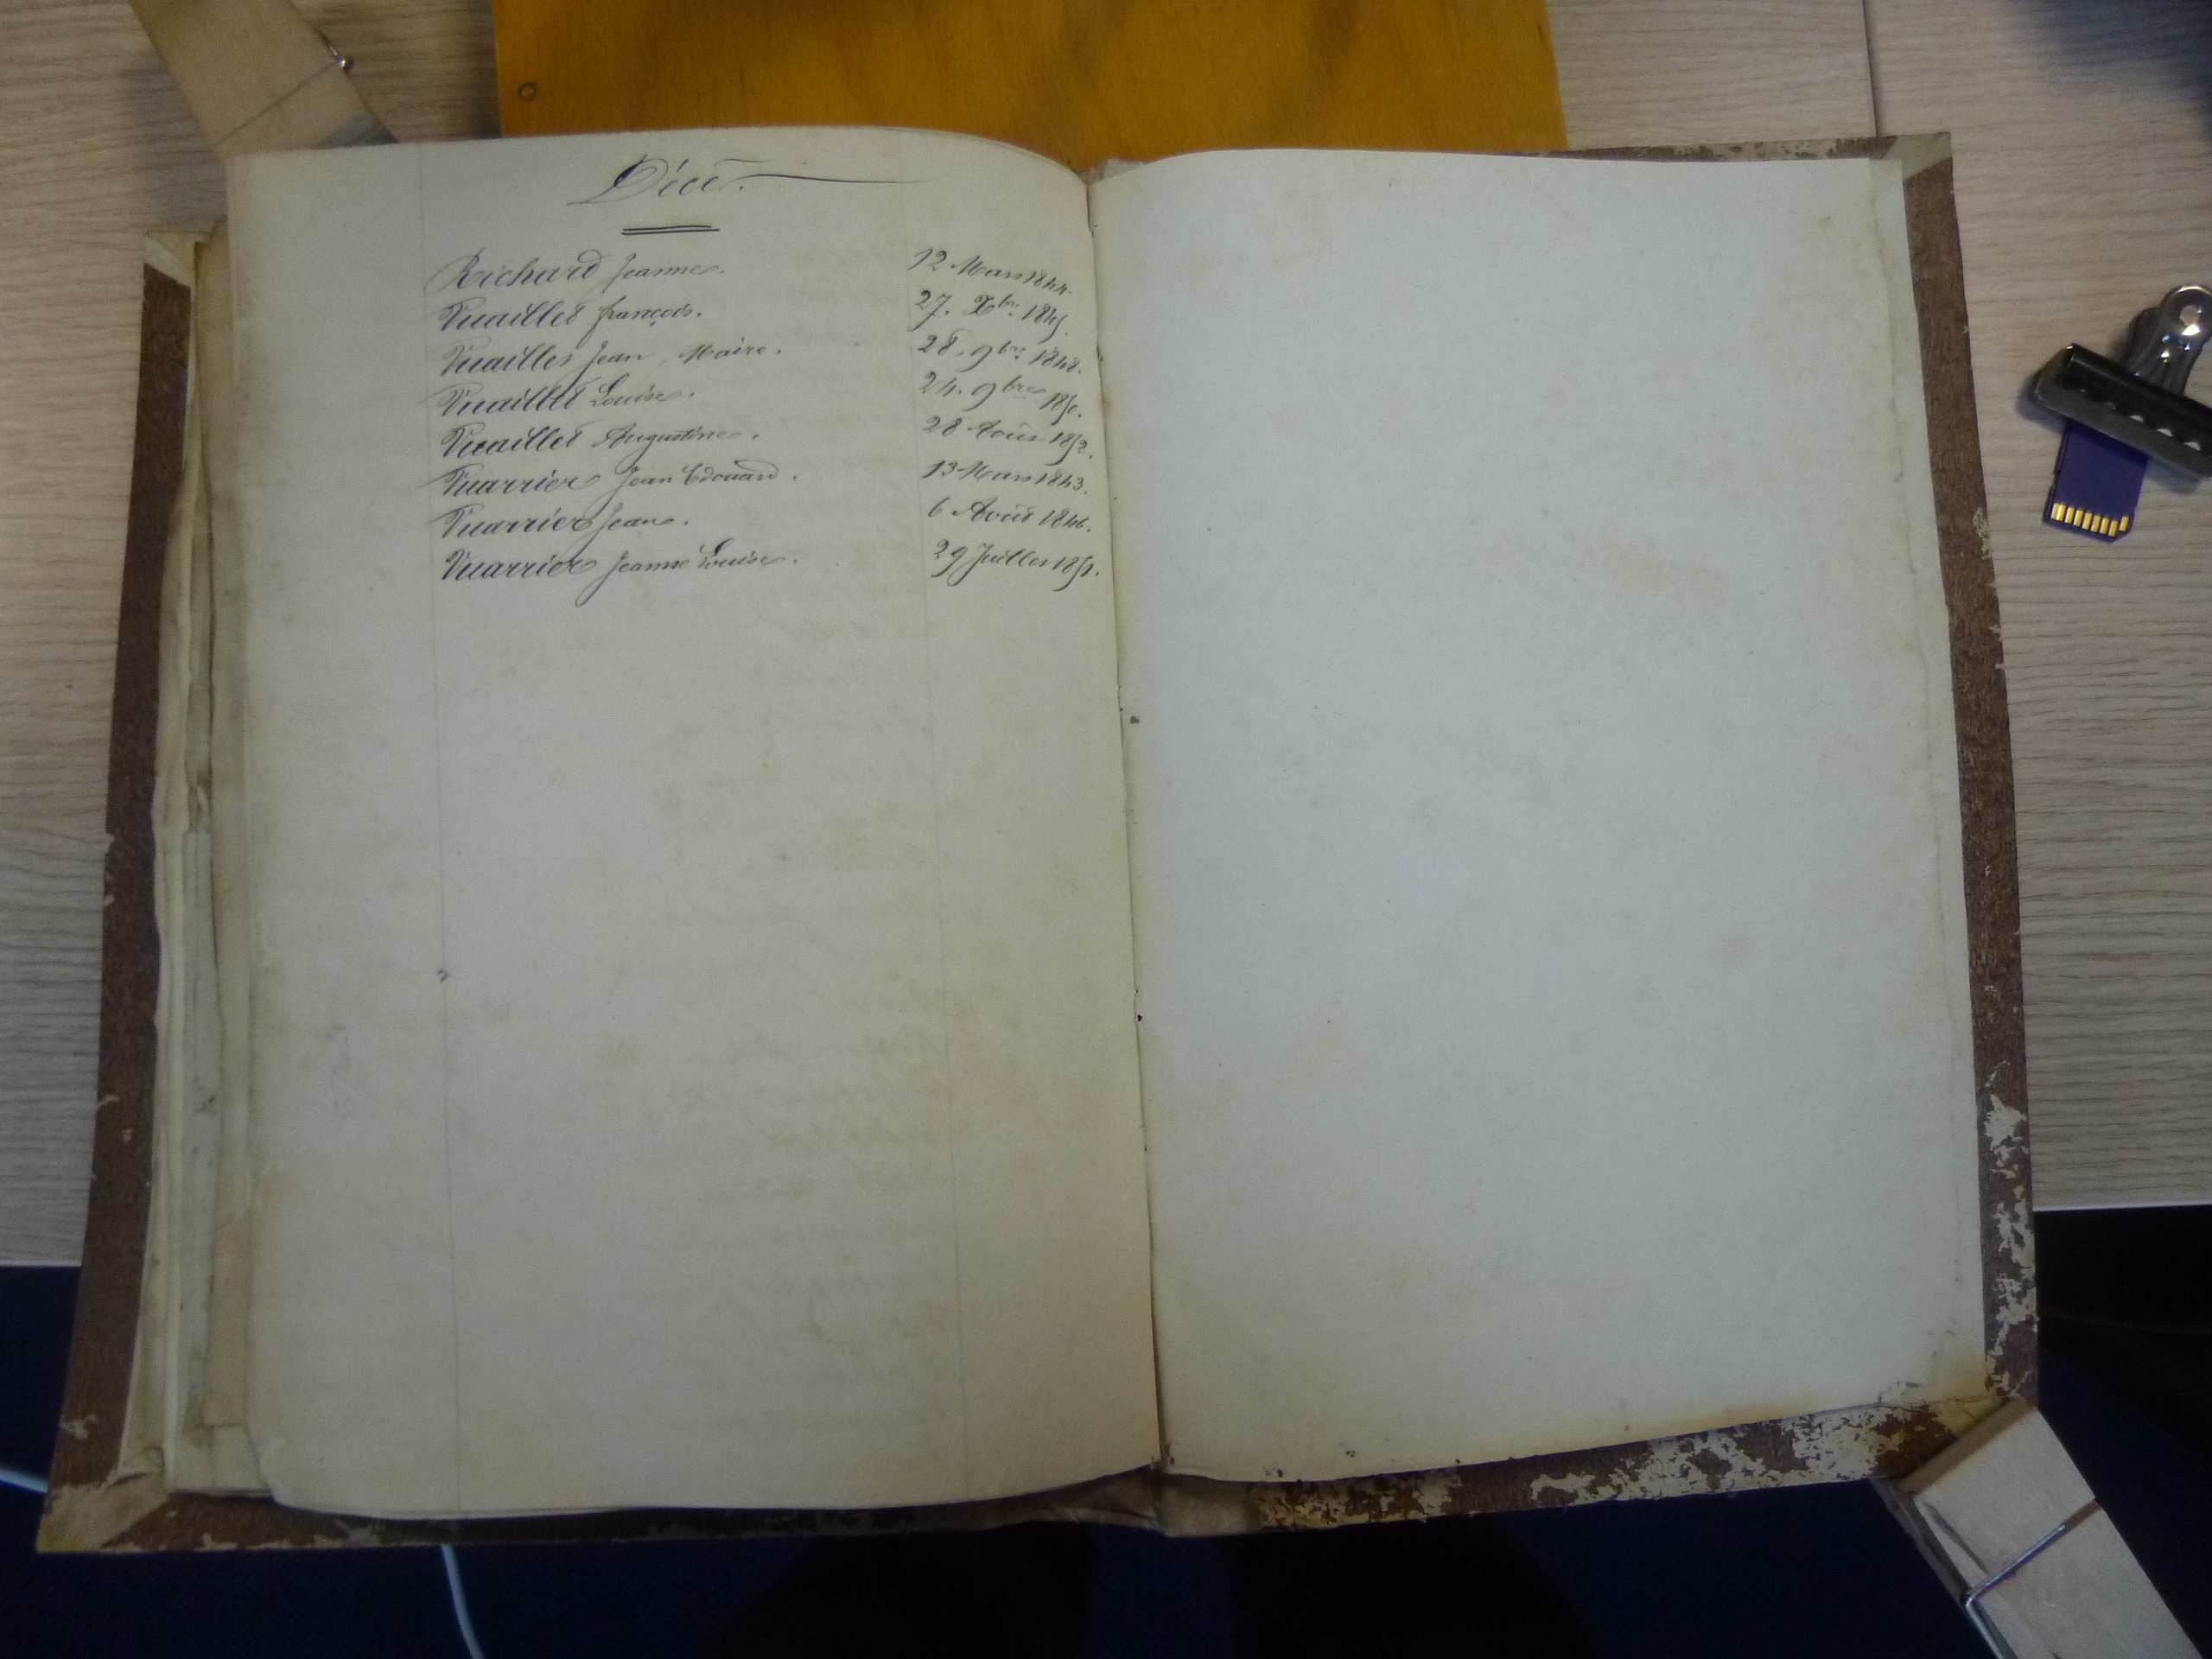 Décè.
Richard Jeanne. 12 Mars 1844.
Vuaillet françois. 27. Xbre 1845.
Vuaillet Jean, Maire. 28. 9bre 1848.
Vuaillet Louise. 24. 9bre 1850.
Vuaillet Augustine. 28 Août 1852.
Vuarrier Jean Edouard. 13 Mars 1843.
Vuarrier Jean. 6 Août 1846.
Vuarrier Jeanne Louise. 29 Juillet 1851.